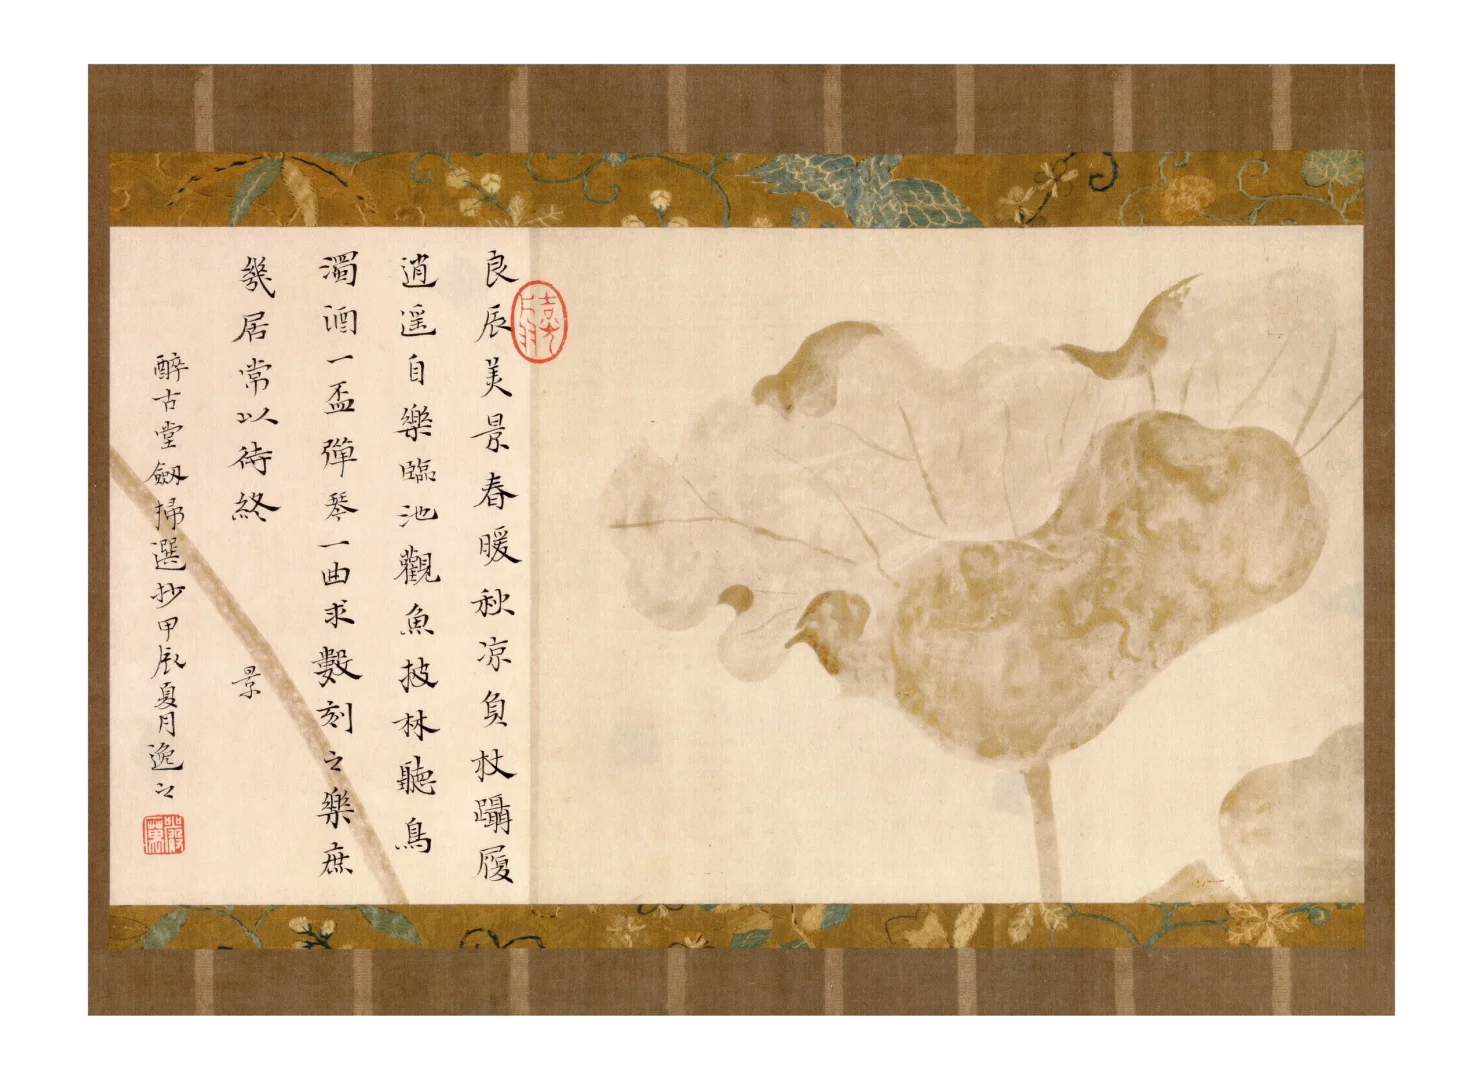 良辰美景春暖秋凉負杖躡履
逍遥自樂臨池觀魚披林聽鳥
濁酒一盃彈琴一曲求數刻之樂庶
幾居常以待終
景
醉古堂劔掃選抄甲辰夏月逸之